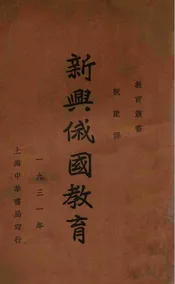 教育叢書
新興俄國教育
一九三一年
上海中華書局印行